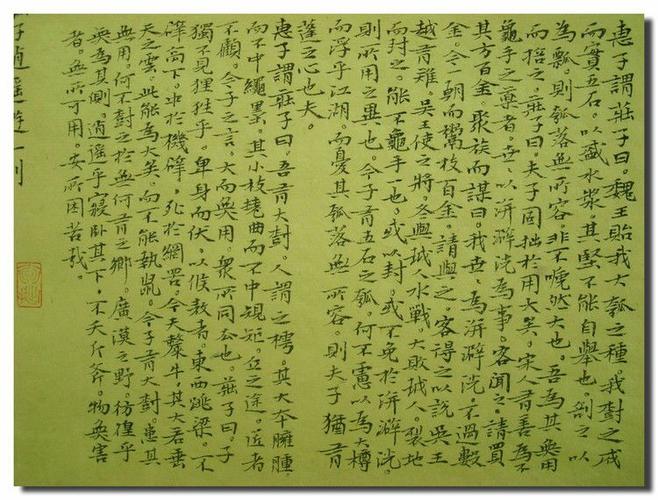 惠子謂莊子曰。魏王貽我大瓠之種。我樹之成
而實五石。以盛水漿。其堅不能自舉也。剖之以
為瓢。則瓠落無所容。非不呺然大也。吾為其無用
而掊之。莊子曰。夫子固拙於用大矣。宋人有善為不
龜手之藥者。世々以洴澼絖為事。客聞之。請買
其方百金。聚族而謀曰。我世々為洴澼絖。不過數
金。今一朝而鬻技百金。請與之。客得之以說吳王
越有難。吳王使之將。冬與越人水戰。大敗越人。裂地
而封之。能不龜手一也。或以封。或不免於洴澼絖
則所用之異也。今子有五石之瓠。何不慮以為大樽
而浮乎江湖。而憂其瓠落無所容。則夫子猶有
蓬之心也夫。
惠子謂莊子曰。吾有大樹。人謂之樗。其大本臃腫
而不中繩墨。其小枝捲曲而不中規矩。立之途。匠者
不顧。今子之言。大而無用。衆所同去也。莊子曰。子
獨不見狸狌乎。卑身而伏。以候敖者。東西跳梁。不
辟高下。中於機辟。死於網罟。今夫斄牛。其大若垂
天之雲。此能為大矣。而不能執鼠。今子有大樹。患其
無用。何不樹之於無何有之鄉。廣漠之野。彷徨乎
無為其側。逍遙乎寢臥其下。不夭斤斧。物無害
者。無所可用。安所困苦哉。
子逍遙遊一則